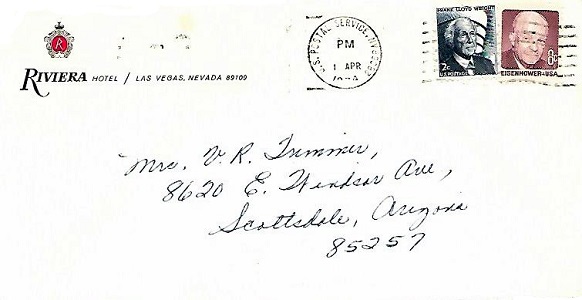 R
RIVIERA HOTEL / LAS VEGAS, NEVADA 89109
U.S. POSTAL SERVICE, NV
PM
1 APR
FRANK LLOYD WRIGHT
2c
U.S. POSTAGE
8c
EISENHOWER·USA
Mrs. V. R. Trimmer,
8620 E. Windsor Ave,
Scottsdale, Arizona
85257